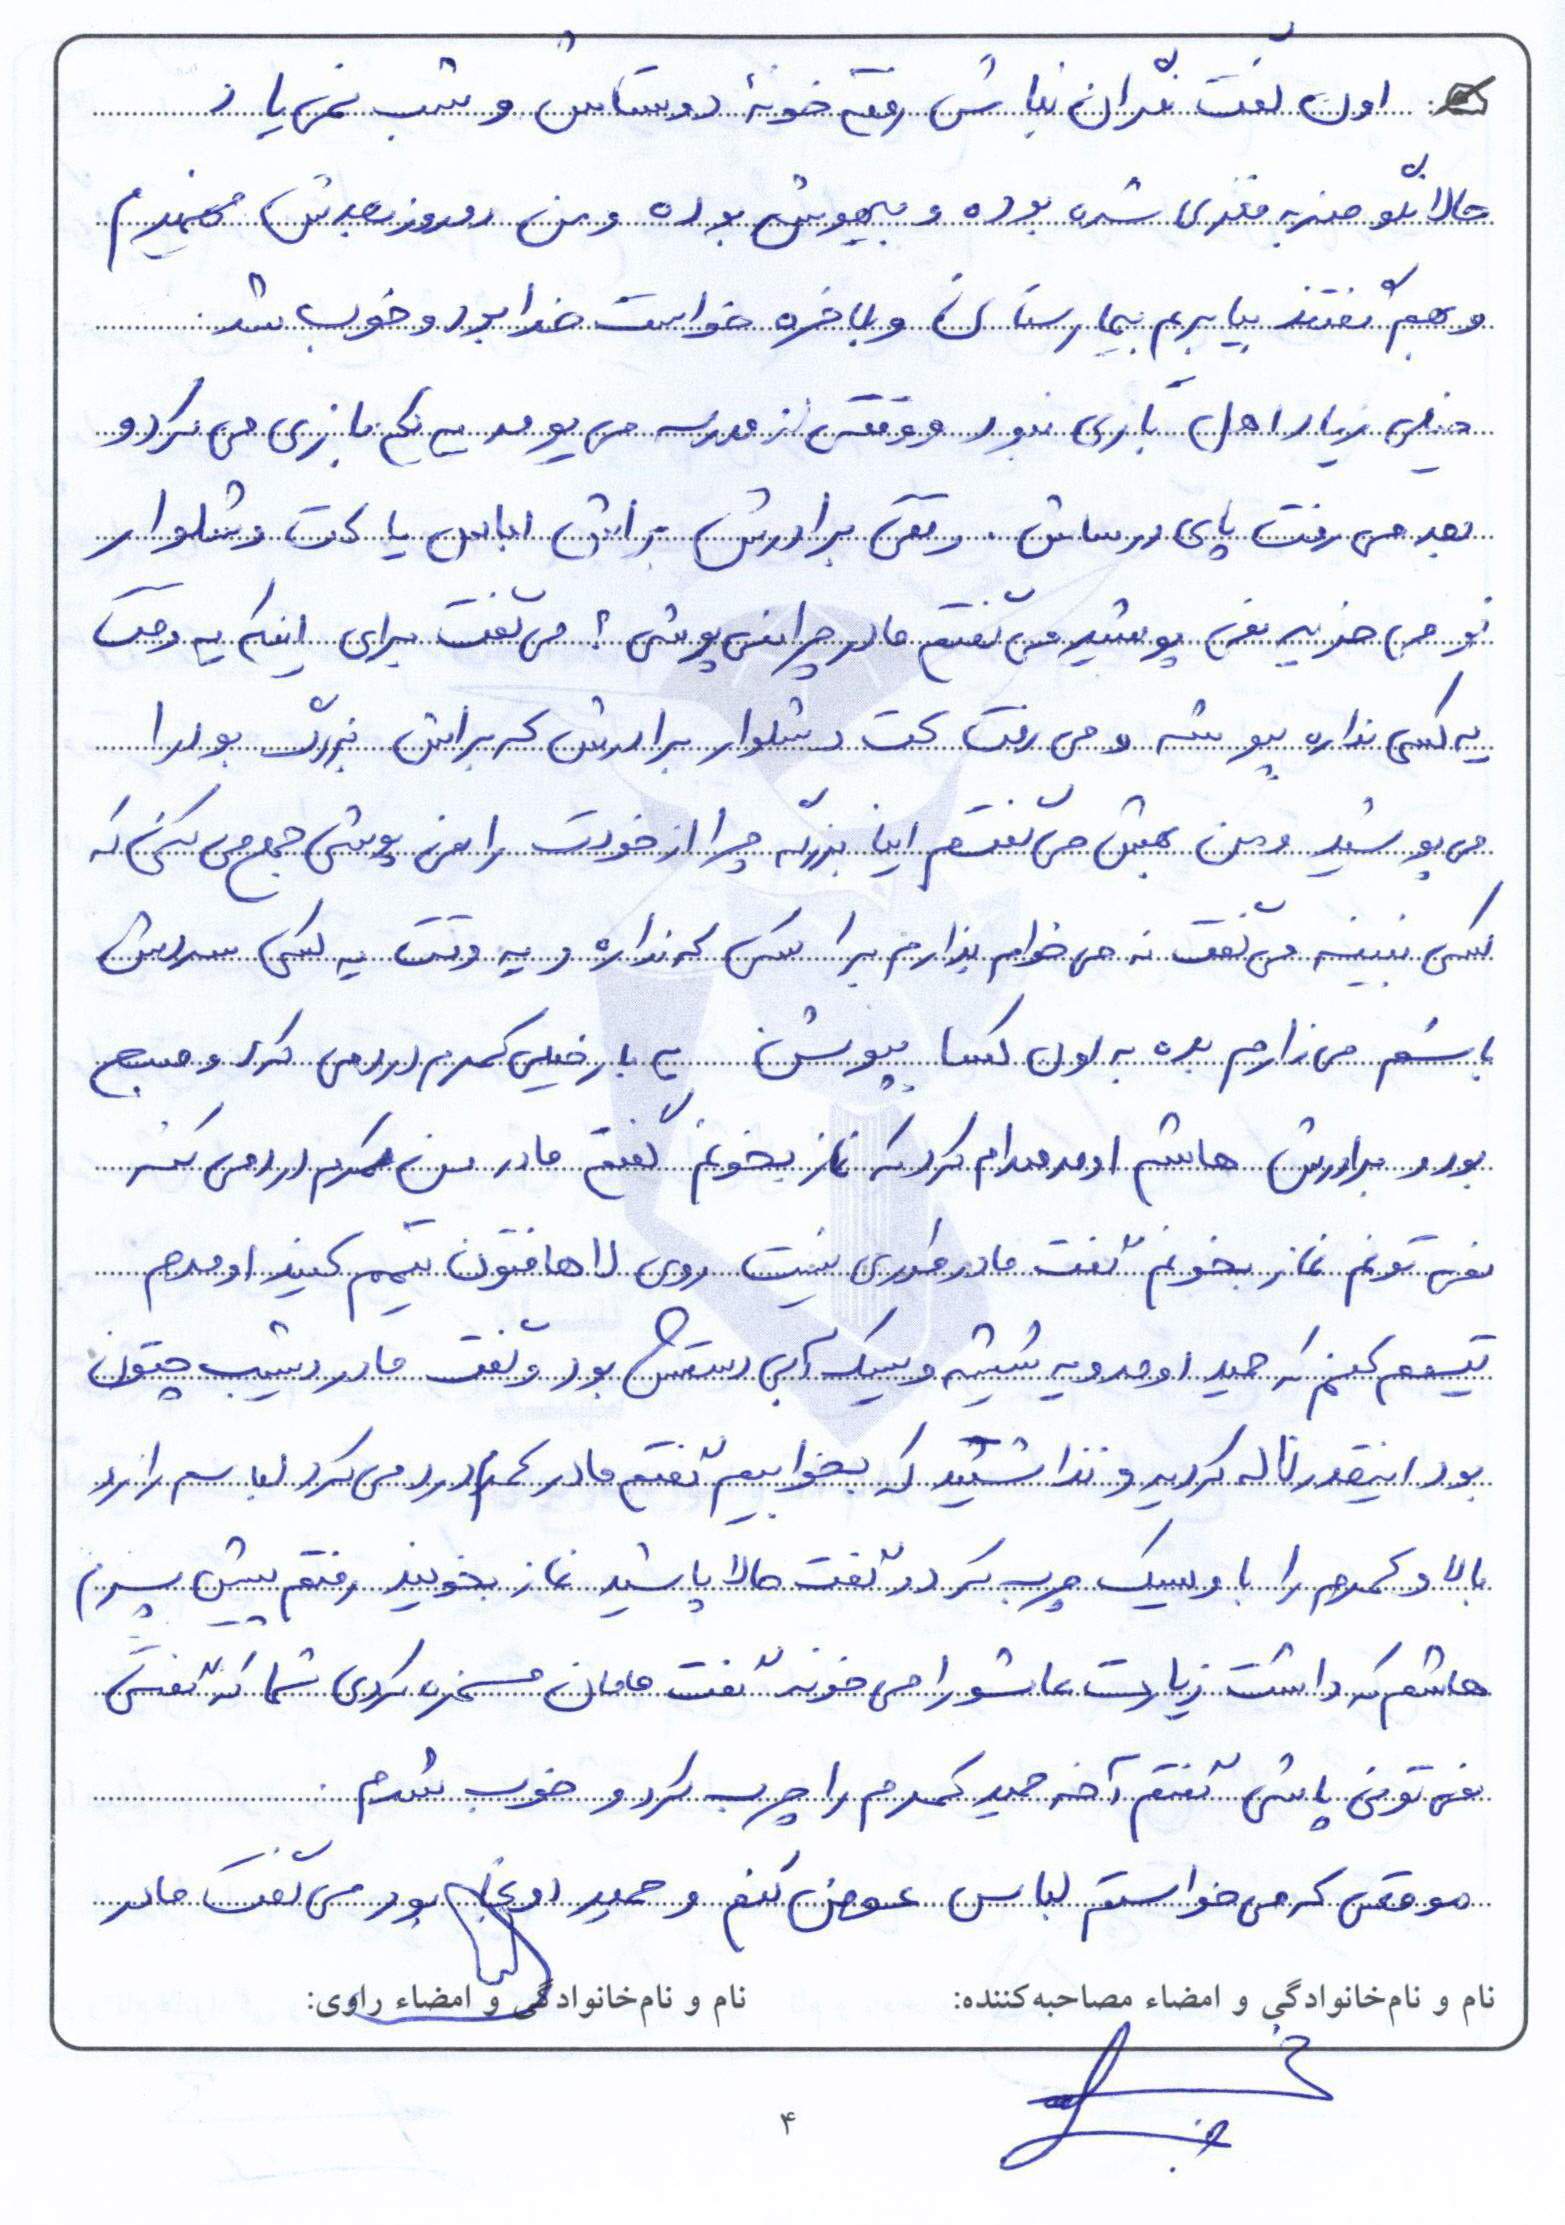 اون گفت نگران نباش رفته خونهٔ دوستاش و شب نمی یاد
حالا نگو ضربه مغزی شده بوده و بیهوش بوده و من دو روز بعدش فهمیدم
و بهم گفتند بیا بریم بیمارستان و بلاخره خواست خدا بود و خوب شد.
خیلی زیاد اهل بازی نبود و وقتی از مدرسه می یومد یه کم بازی می کرد و
بعد می رفت پای درساش. وقتی برادرش براش لباس یا کت و شلوار
نو می خرید نمی پوشید می گفتم مادر چرا نمی پوشی؟ می گفت برای اینکه یه وقت
یه کسی نداره بپوشه و می رفت کت و شلوار برادرش که براش بزرگ بود را
می پوشید و من بهش می گفتم اینا بزرگه چرا از خودت را نمی پوشی جمع می کنی که
کسی نبینه می گفت نه می خوام بذارم برا کسی که نداره و یه وقت یه کسی سردش
باشم می زارم بده به اون کسا بپوشن یه بار خیلی کمرم درد می کرد و صبح
بود و برادرش هاشم اومد صدام کرد که نماز بخونم گفتم مادر من کمرم درد می کنه
نمی تونم نماز بخونم گفت مادر طوری نیست روی لاهافتون تیمم کنید اومدم
تیمم کنم که حمید اومد و یه شیشه ویسیک آبی دستش بود و گفت مادر دیشب چتون
بود اینقدر ناله کردید و نذاشتید که بخوابیم گفتم مادر کمرم درد می کرد لباسم را زد
بالا و کمرم را با ویسیک چرب کرد و گفت حالا پاشید نماز بخونید رفتم پیش پسرم
هاشم که داشت زیارت عاشورا می خونه گفت مامان مسخره کردی شما که گفتی
نمی تونی پاشی گفتم آخه حمید کمرم را چرب کرد و خوب شدم.
موقعی که می خواستم لباس عوض کنم و حمید اونجا بود می گفت مادر
نام و نام‌خانوادگی و امضاء مصاحبه‌کننده:
نام و نام‌خانوادگی و امضاء راوی:
۴